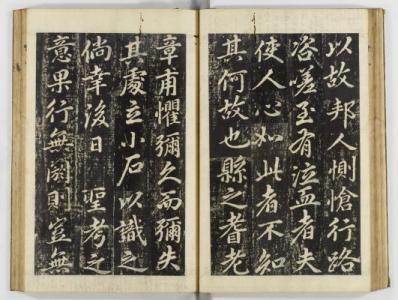 以故邦人惻愴行路
咨嗟至有泣血者夫
使人心如此者不知
其何故也縣之耆老
章甫懼彌久而彌失
其處立小石以識之
倘幸後日 聖考之
意果行無闕則豈無